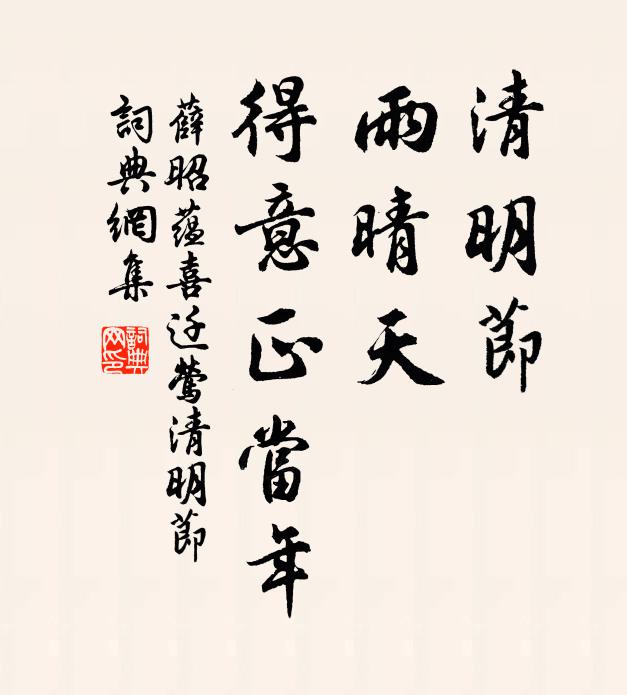 清明節
雨晴天
得意正當年
薛昭蘊喜迁鶯清明節
詞典網集
詞典網印